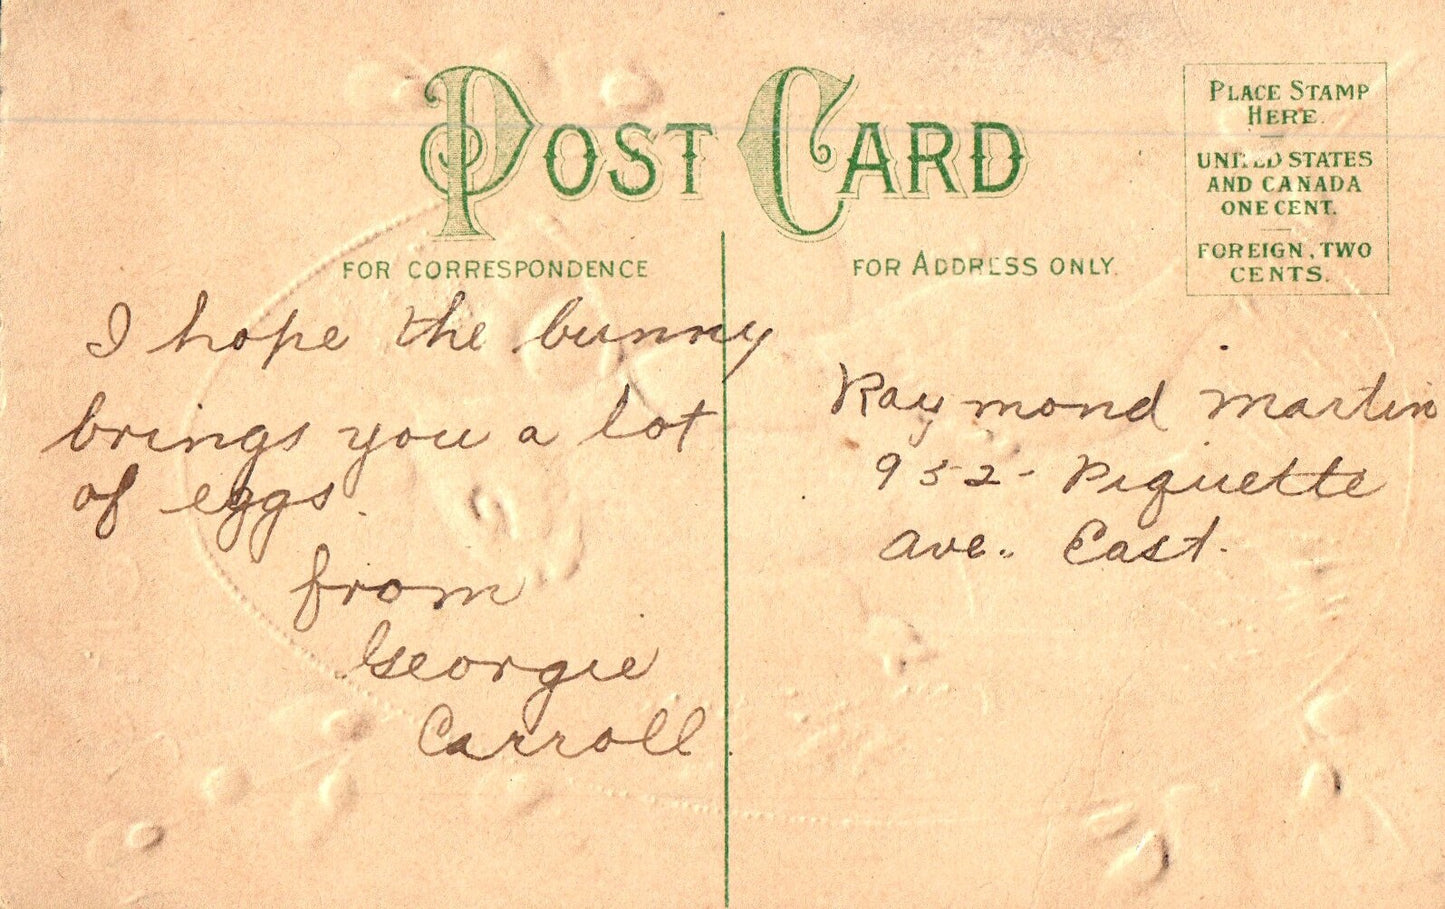 POST CARD
FOR CORRESPONDENCE
FOR ADDRESS ONLY.
PLACE STAMP
HERE.
UNITED STATES
AND CANADA
ONE CENT.
FOREIGN, TWO
CENTS.
I hope the bunny
brings you a lot
of eggs.
from
Georgie
Carroll.
Raymond Martin
952- Piquette
Ave.. East.